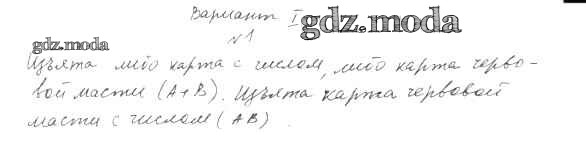 Вариант I
gdz.moda
№1
gdz.moda
Изъята либо карта с числом, либо карта черво-
вой масти (A+B). Изъята карта червовой
масти с числом (AB).